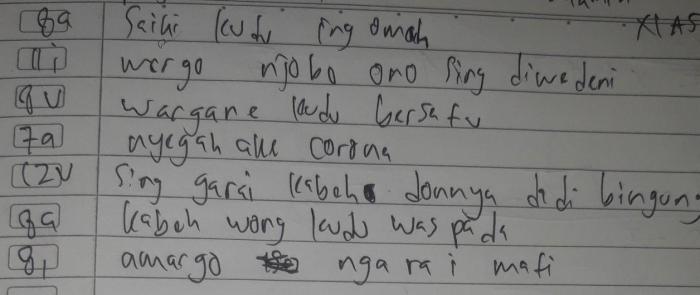 8a Saiki kudu ing omah XI A5
11i wergo njobo ono sing diwedeni
8u wargane kudu bersatu
7a nyegah ake corona
12u Sing garai kabeh donnya dadi bingung
8a kabeh wong kudu was pada
8i amargo ngarai mati